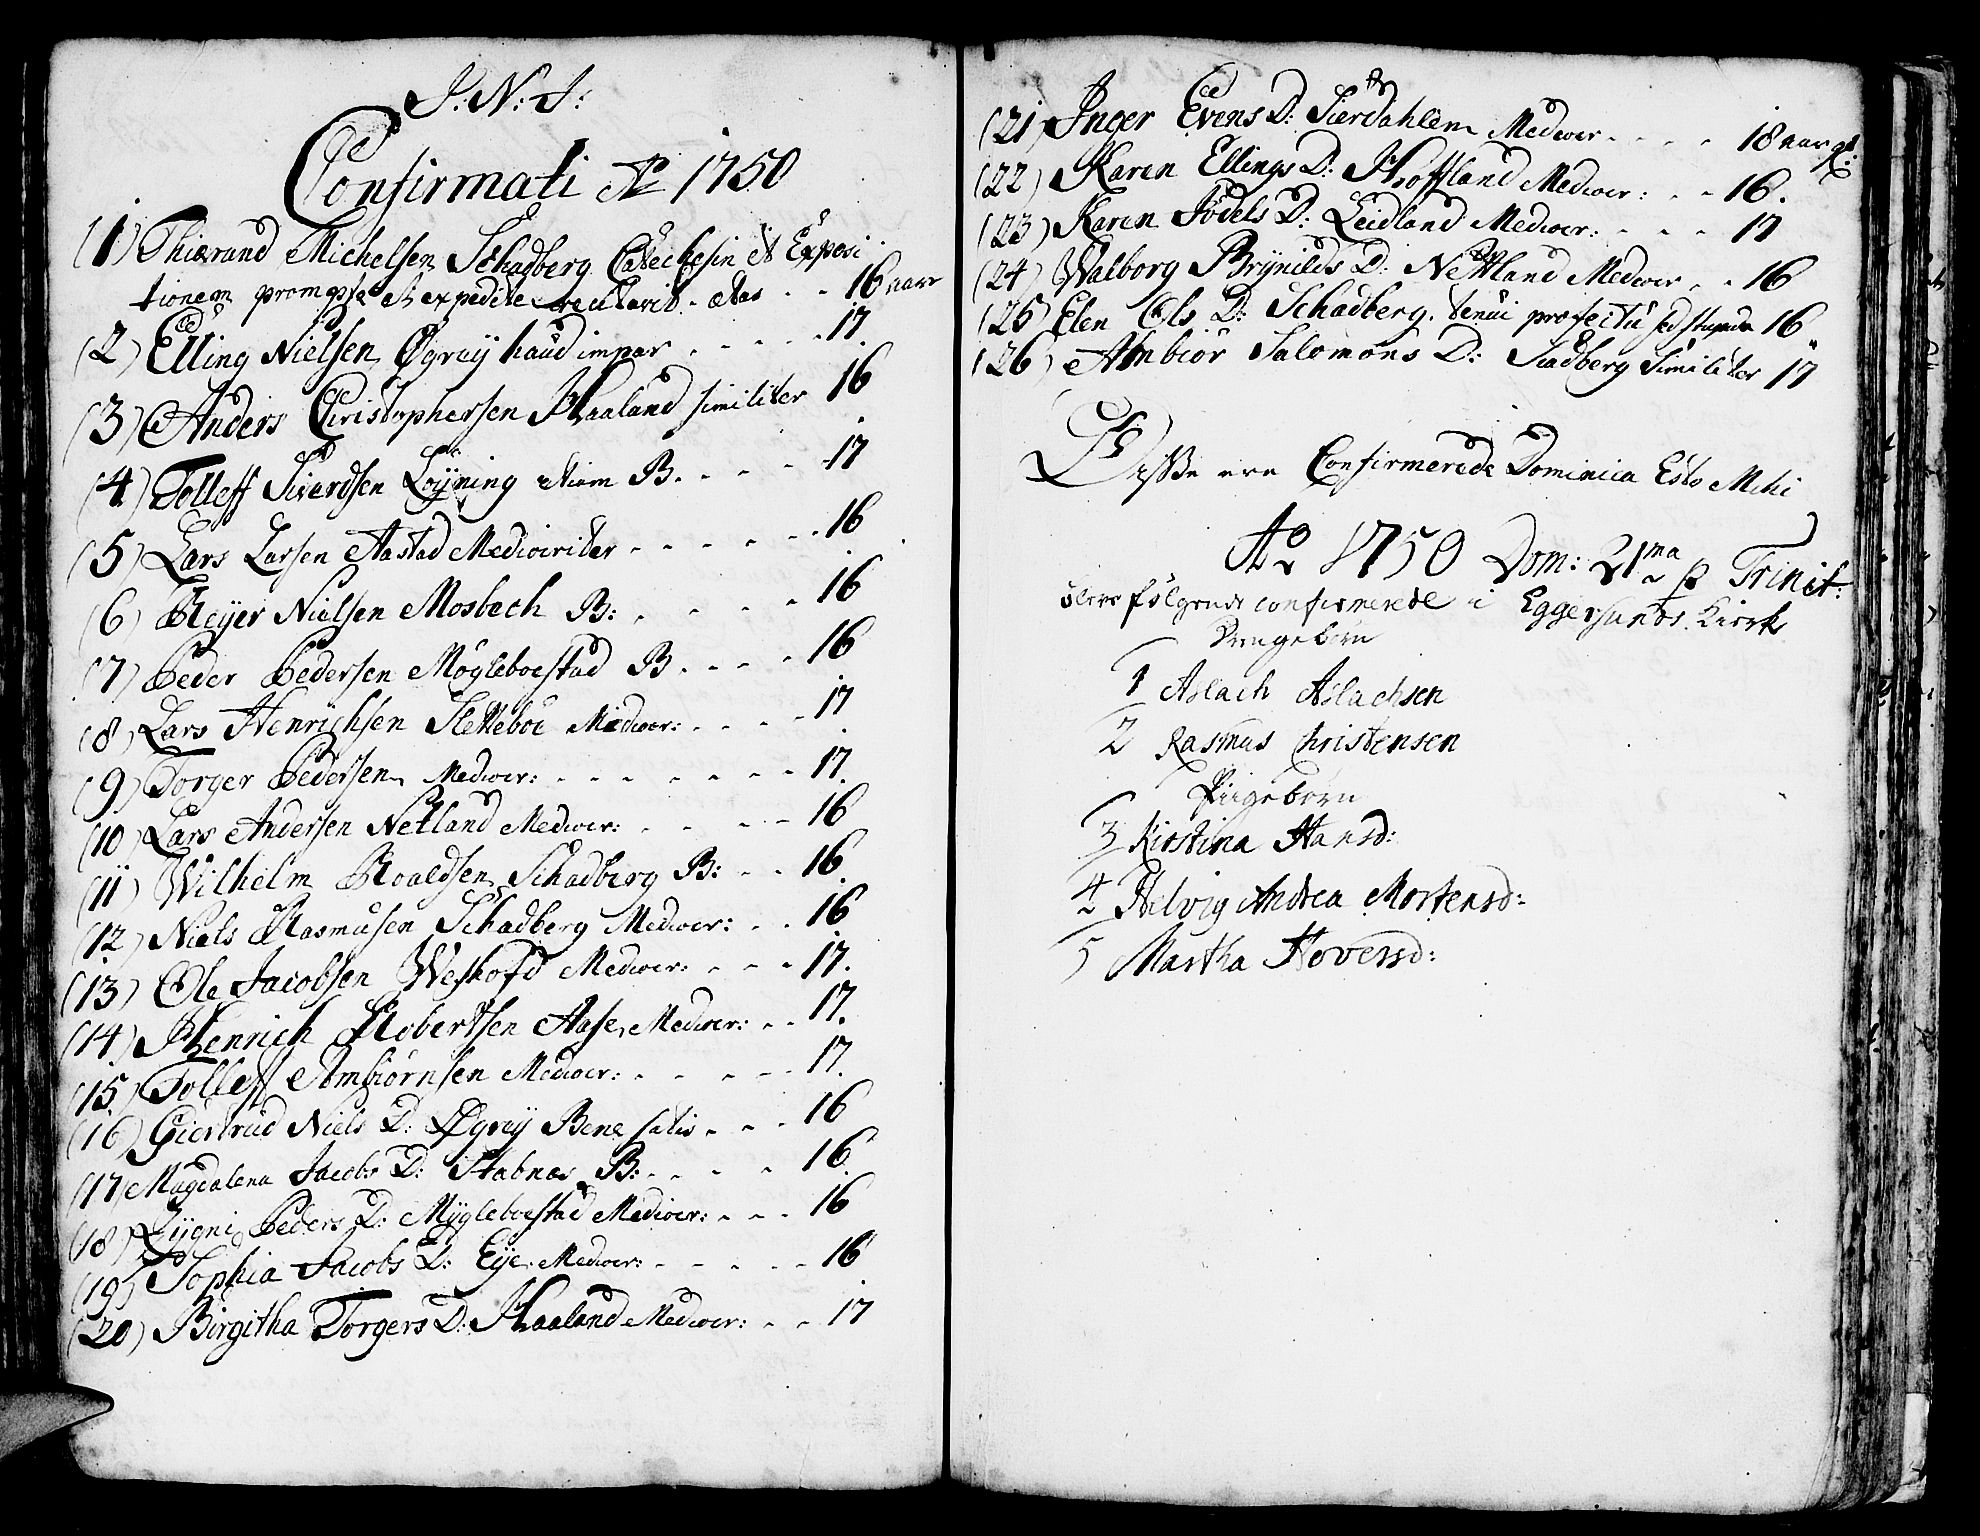 J: N: J:
Confirmati Ao 1750
(1) Thiærand Michelsen Schadberg Catechesin et Exposi
tionem prompte et expedite recitavit. ætas - - 16 aar
(2) Elling Nielsen Øgrey haud impar - - - - 17.
(3) Anders Christophersen Haaland similiter 16
(4) Tolleff Siverdsen Löyning etiam B. - - - 17
(5) Lars Larsen Aastad Mediocriter - - - - - - 16
(6) Reyer Nielsen Mosbech B: - - - - - 16
(7) Peder Pedersen Mögleboestad B - - - - 16
(8) Lars Henrichsen Sletteboe Mediocr: - - - - 17
(9) Torger Pedersen Mediocr: - - - - - - - - 17.
(10) Lars Andersen Netland Mediocr: - - - - - 16
(11) Wilhelm Roaldsen Schadberg B: - - 16.
(12) Niels Rasmusen Schadberg Mediocr: - - 16
(13) Ole Jacobsen Weshofd Mediocr: - - - 17.
(14) Henrich Robertsen Aase Mediocr: - - 17.
(15) Tolleff Ambiörnsen Mediocr: - - - - - 17.
(16) Giertrud Niels D: Øgrey Bene satis - - - 16
(17) Magdalena Jacobs D: Stabnes B: - - - - 16.
(18) Sygni Peders D: Mygleboestad Mediocr: - - - 16
(19) Sophia Jacobs D: Eye Mediocr: - - - - - 16
(20) Birgitha Torgers D: Haaland Mediocr: - - 17
(21) Inger Evens D: Sierdahlen Mediocr - - - - 18 aar
(22) Karen Ellings D: Hoffland Mediocr: - - 16.
(23) Karen Jödels D: Leidland Mediocr: - - - - 17
(24) Walborg Brynilds D: Nettland Mediocr - - 16
(25) Elen Ols D: Schadberg. tenui profectu sed 16
(26) Ambiör Salomons D: Scadberg Similiter 17
Disse ere Confirmerede Dominica Esto Mihi
Ao 1750 Dom: 21ma p Trinit:
bleve fölgende confirmerede i Eggersunds Kirke
Drengebörn
1 Aslach Aslachsen
2 Rasmus Christensen
Piigebörn
3 Kirstina Hansd:
4 Helvig Andrea Mortensd:
5 Martha Hoversd: